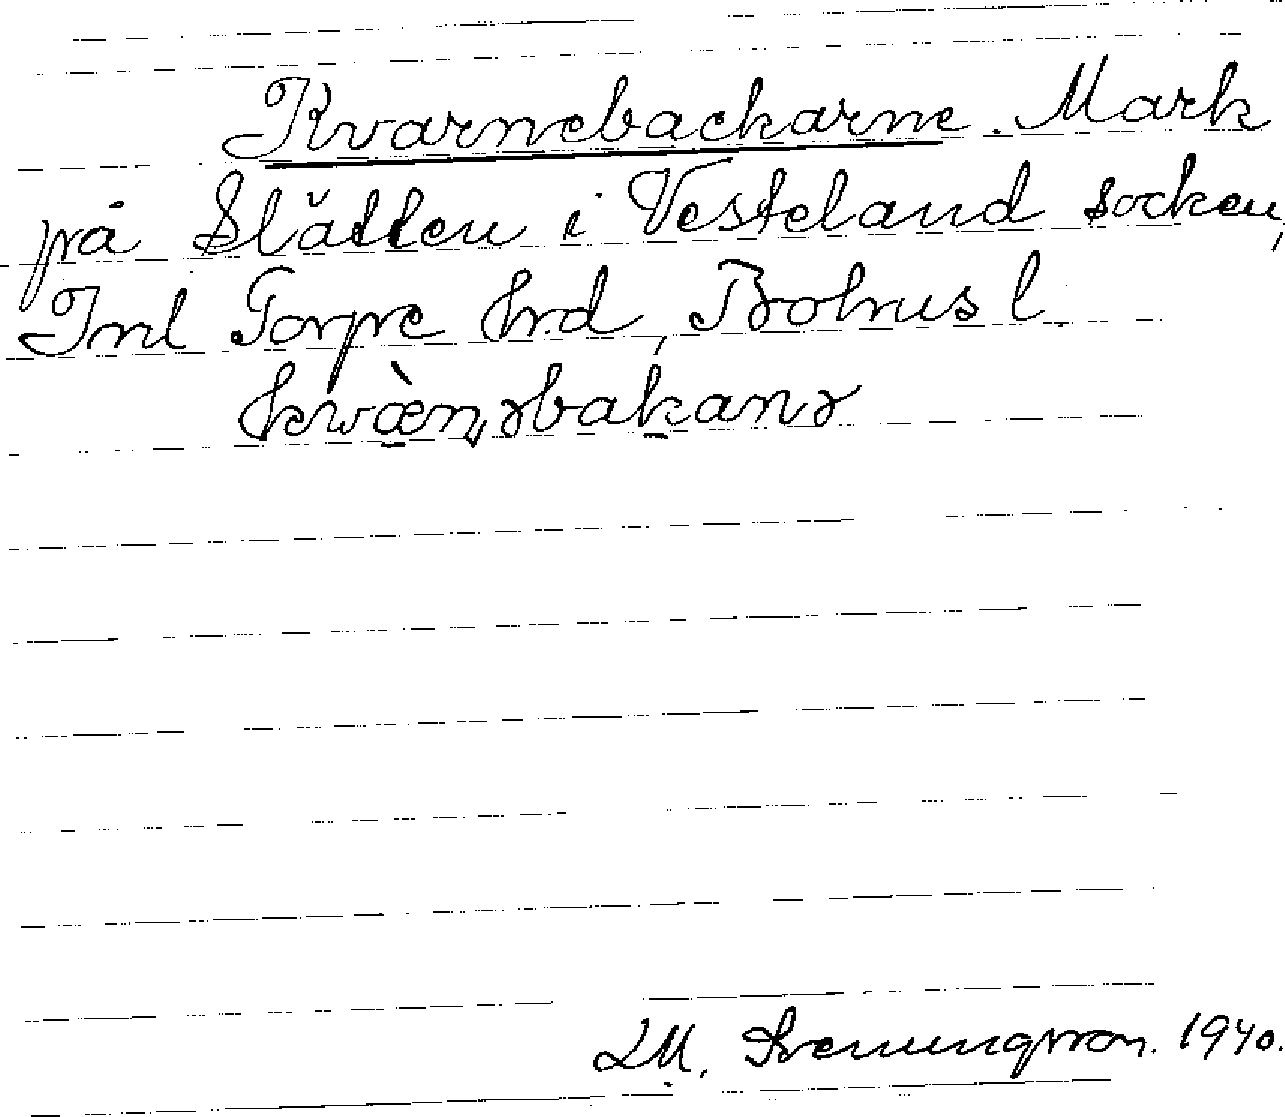 Kvarnebackarne. Mark
på Slätten i Vesteland socken,
Inl Torpe hrd, Bohus l.
kwæ̀nɘbakanɘ
LM. Svenungsson. 1940.